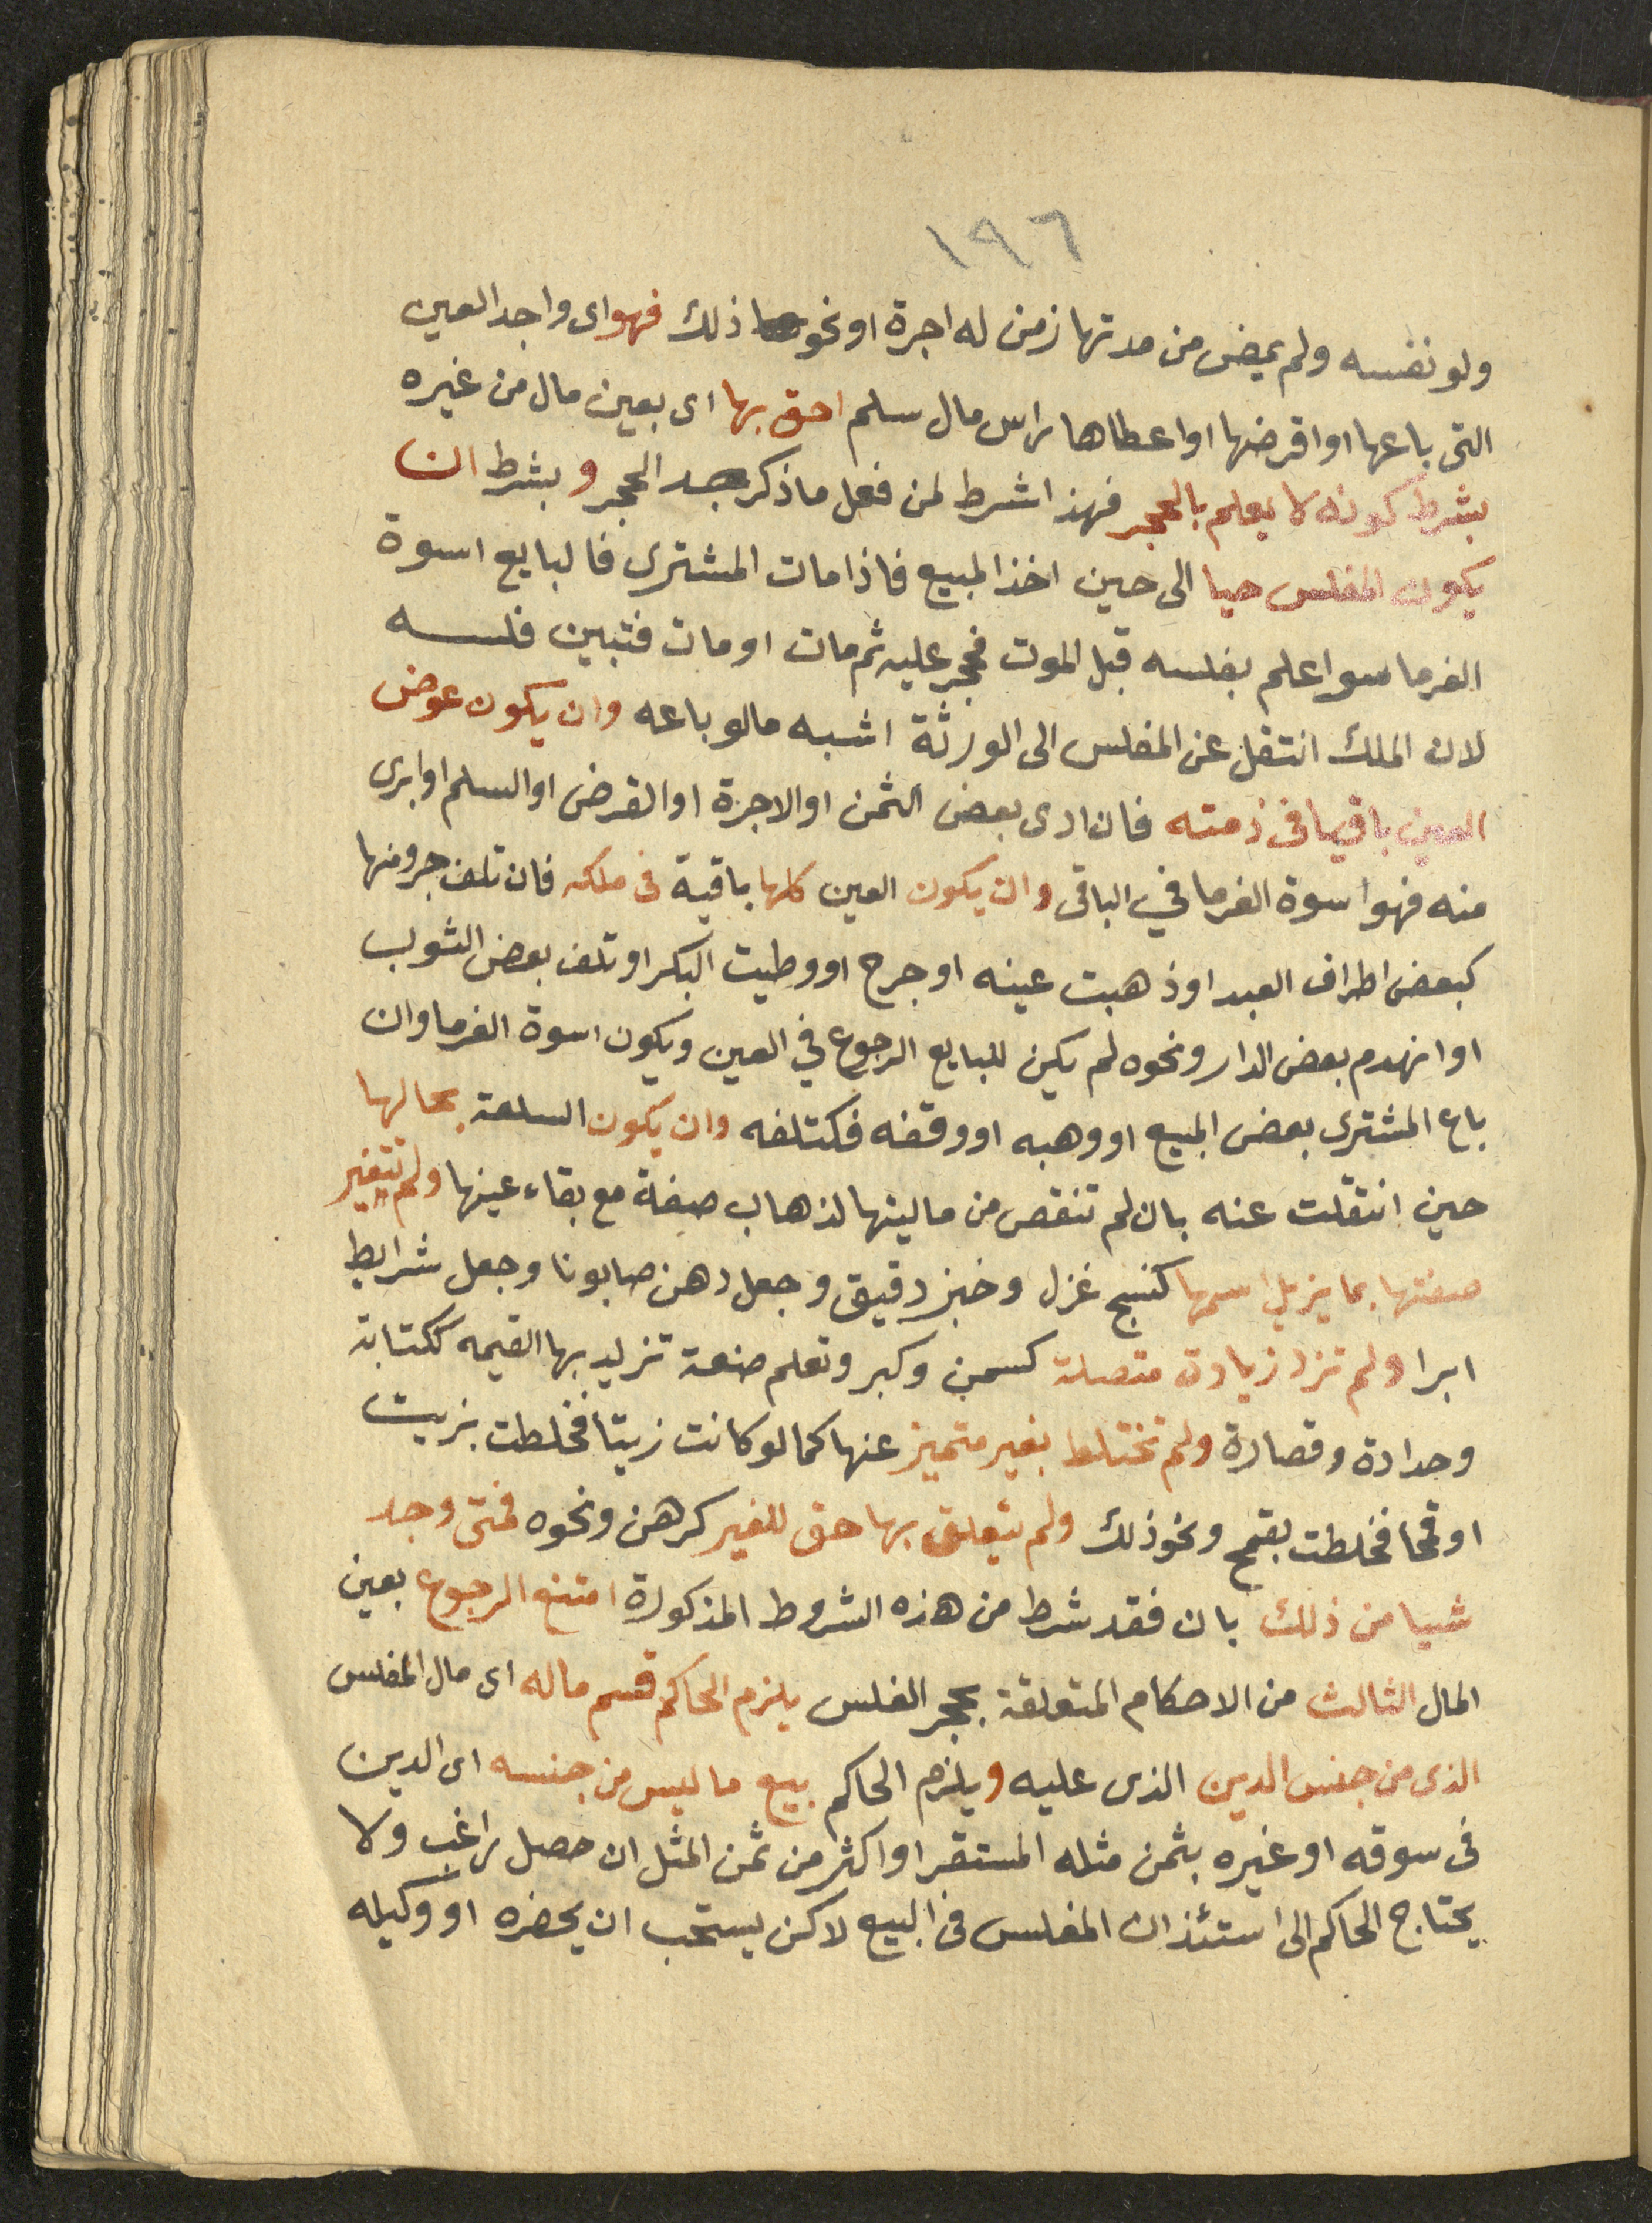 ١٩٦
ولو نفسه ولم يمض من مدتها زمن له اجرة او نحو ذلك فهو اى واجد العين
التى باعها او اقرضها او اعطاها راس مال سلم احق بها اى بعين مال من غيره
بشرط كونه لا يعلم بالحجر فهذا شرط لمن فعل ما ذكر بعد الحجر و بشرط ان
يكون المفلس حيا الى حين اخذ المبيع فاذا مات المشترى فالبايع اسوة
الغرما سوا علم بفلسه قبل الموت فحجر عليه ثم مات او مات فتبين فلسه
لان الملك انتقل عن المفلس الى الورثة اشبه مالو باعه وان يكون عوض
العين باقيا فى ذمته فان ادى بعض الثمن او الاجرة او القرض او السلم او ابرى
منه فهو اسوة الغرما في الباقى وان يكون العين كلها باقية فى ملكه فان تلف جزو منها
كبعض اطراف العبد او ذهبت عينه او جرح او وطيت البكر او تلف بعض الثوب
او انهدم بعض الدار ونحوه لم يكن للبايع الرجوع في العين ويكون اسوة الغرما وان
باع المشترى بعض المبيع او وهبه او وقفه فكتلفه وان يكون السلعة بحالها
حين انتقلت عنه بان لم تنقص من ماليتها لذهاب صفة مع بقاء عينها ولم تتغير
صفتها بما يزيل اسمها كنسج غزل وخبز دقيق وجعل دهن صابونا وجعل شرايط
ابرا ولم تزد زيادة متصلة كسمن وكبر وتعلم صنعة تزيد بها القيمه ككتابة
وحدادة وقصارة ولم تختلط بغير متميز عنها كما لو كانت زيتا فخلطت بزيت
او قمحا فخلطت بقمح ونحو ذلك ولم يتعلق بها حق للغير كرهن ونحوه فمتى وجد
شيا من ذلك بان فقد شرط من هذه الشروط المذكورة امتنع الرجوع بعين
المال الثالث من الاحكام المتعلقة بحجر الفلس يلزم الحاكم قسم ماله اى مال المفلس
الذى من جنس الدين الذى عليه و يلزم الحاكم بيع ما ليس من جنسه اى الدين
فى سوقه او غيره بثمن مثله المستقر او اكثر من ثمن المثل ان حصل راغب ولا
يحتاج الحاكم الى استئذان المفلس فى البيع لاكن يستحب ان يحضره او وكيله